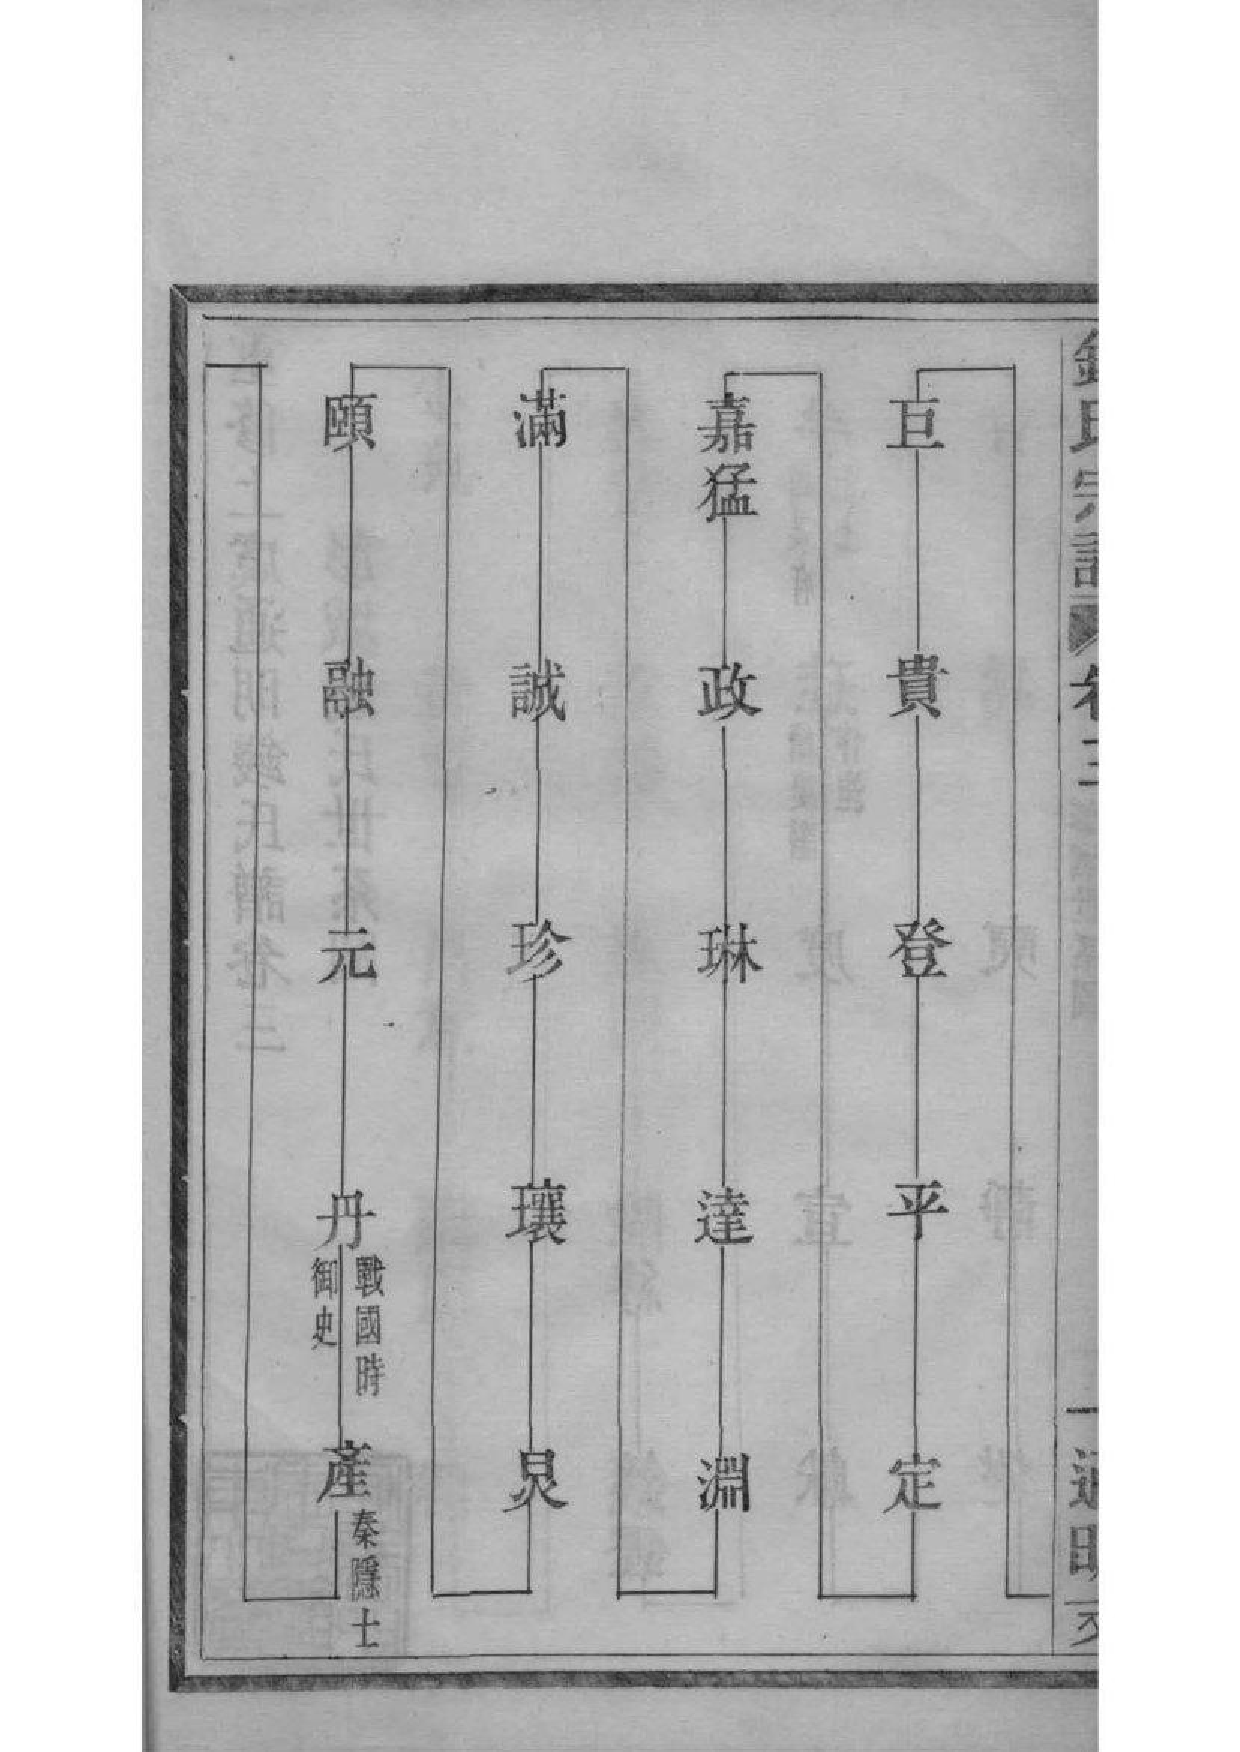 錢氏宗譜 卷三 一 通明
巨 貴 登 平 定
嘉猛 政 琳 達 淵
滿 誠 珍 瓌 炅
頤 融 元 丹 戰國時御史 產 秦隱士